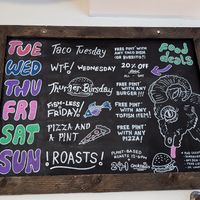 TUE Taco Tuesday FREE PINT WITH ANY TACO DISH (OR BURRITO!)
food deals
WED WTF! WEDNESDAY 20% OFF ALL
THU Thurger Bursday FREE PINT WITH ANY BURGER!!
FRI FISH-LESS FRIDAY! FREE PINT WITH ANY TOFISH ITEM!
SAT PIZZA AND A PINT FREE PINT WITH ANY PIZZA!
SUN !ROASTS! PLANT-BASED ROASTS 12-6PM